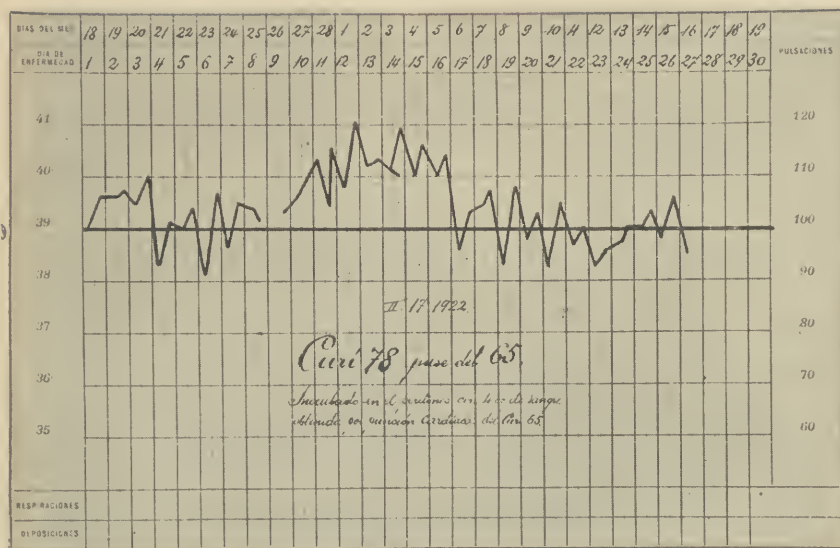 DIAS DEL MES 18 19 20 21 22 23 24 25 26 27 28 1 2 3 4 5 6 7 8 9 10 11 12 13 14 15 16 17 18 19
DIA DE ENFERMEDAD 1 2 3 4 5 6 7 8 9 10 11 12 13 14 15 16 17 18 19 20 21 22 23 24 25 26 27 28 29 30
PULSACIONES
41 120
40 110
39 100
38 90
II 17 1922
37 80
Curí 78 pase del 65.
36 70
Inoculado en el con de sangre
obtenida por Cardiaca del Curí 65
35 60
RESPIRACIONES
DEPOSICIONES